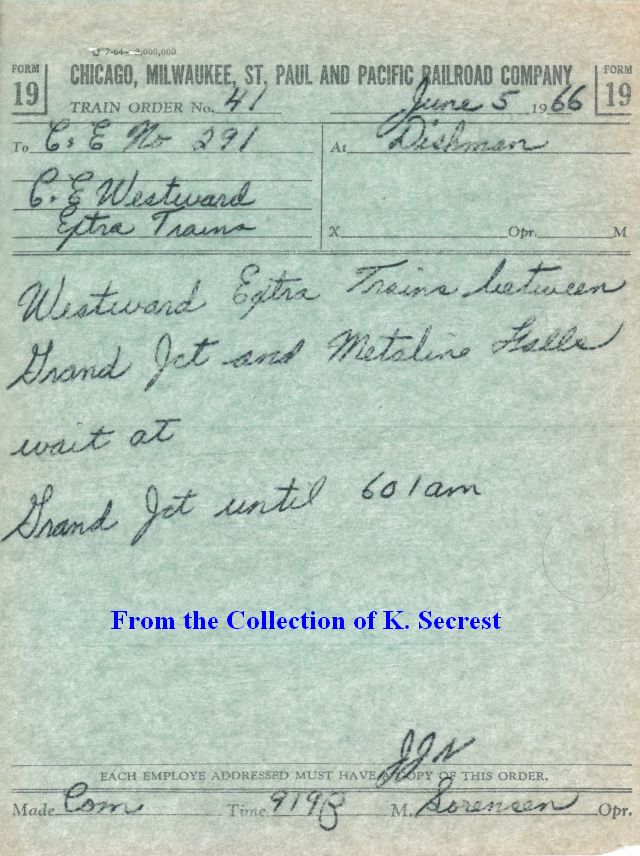 7-64— 2,000,000
FORM 19 CHICAGO, MILWAUKEE, ST. PAUL AND PACIFIC RAILROAD COMPANY FORM 19
TRAIN ORDER No. 41 June 5 1966
To C. & E No 291 At Dishman
C. & E Westward
Extra Trains
X Opr. M
Westward Extra Trains between
Grand Jct and Metaline Falls
wait at
Grand Jct until 601am
From the Collection of K. Secrest
JJN
EACH EMPLOYE ADDRESSED MUST HAVE A COPY OF THIS ORDER.
Made Com Time 919P M. Sorensen Opr.